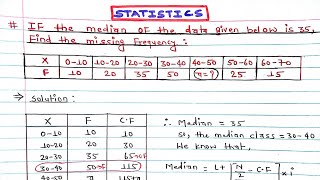 STATISTICS
# IF the median of the data given below is 35,
Find the missing Frequency :
X 0-10 10-20 20-30 30-40 40-50 50-60 60-70
F 10 20 35 50 (n=?) 25 15
→ Solution :
X F C.F
0-10 10 10
10-20 20 30
20-30 35 65
30-40 50 115
40-50
∴ Median = 35
So, the median class = 30-40
We know that,
Median = L + [ N/2 - C.F ] × i